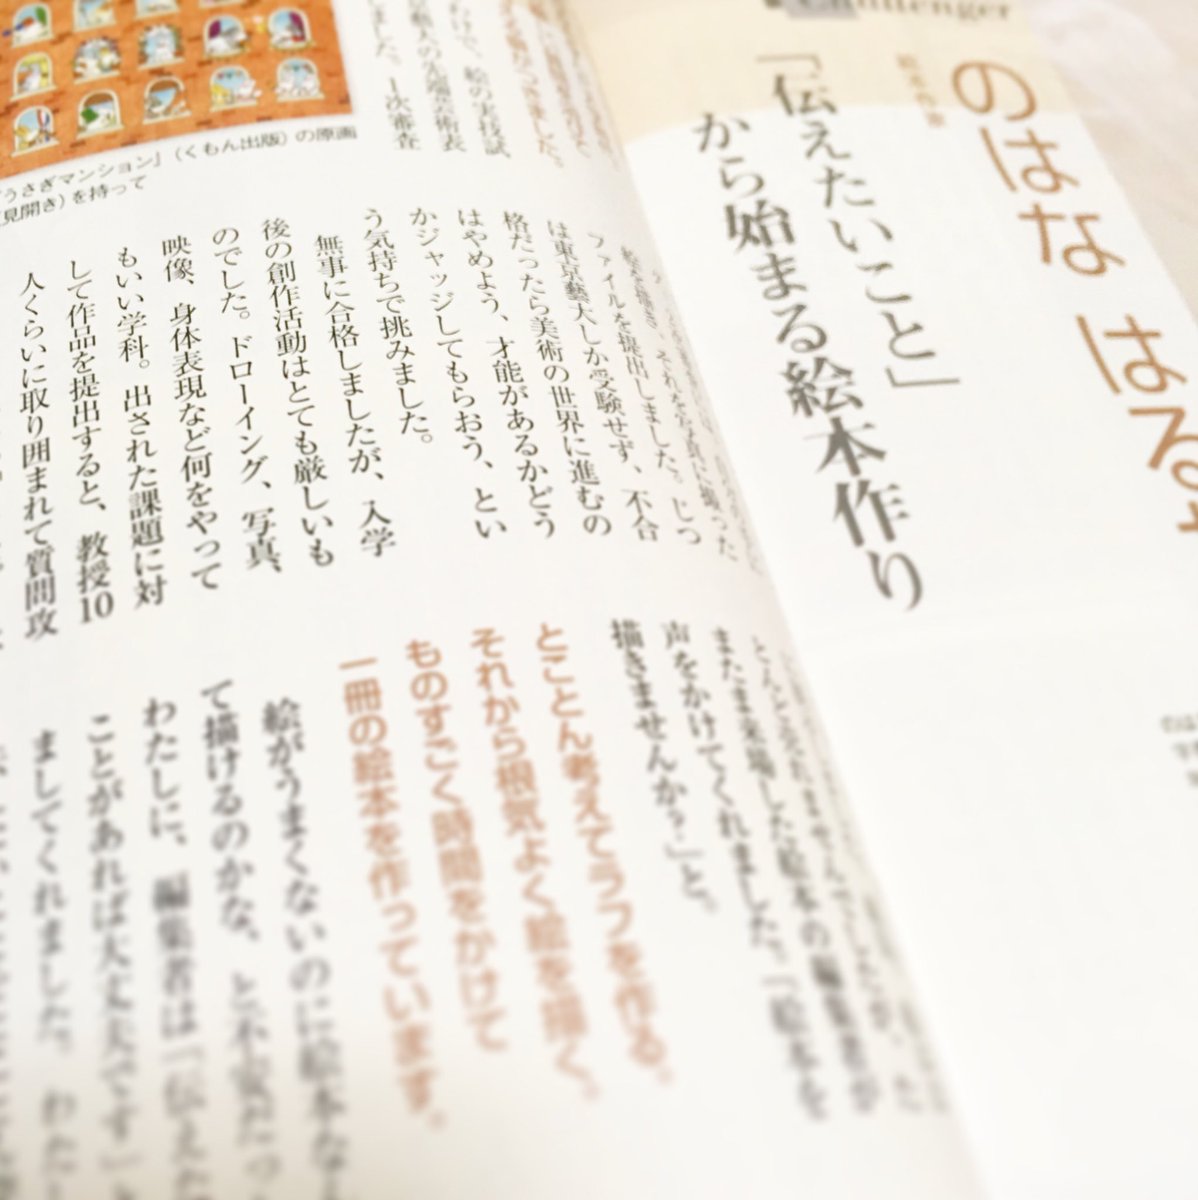 Challenger
絵本作家
のはな はるか
「伝えたいこと」
から始まる絵本作り
うさぎマンション』(くもん出版)の原画
(見開き)を持って
わけで、絵の実技試
京藝大の先端芸術表
しました。1次審査
ファイルを提出しました。じつ
は東京藝大しか受験せず、不合
格だったら美術の世界に進むの
はやめよう、才能があるかどう
かジャッジしてもらおう、とい
う気持ちで挑みました。
無事に合格しましたが、入学
後の創作活動はとても厳しいも
のでした。ドローイング、写真、
映像、身体表現など何をやって
もいい学科。出された課題に対
して作品を提出すると、教授10
人くらいに取り囲まれて質問攻
またま来場した絵本の編集者が
声をかけてくれました。「絵本を
描きませんか?」と。
とことん考えてラフを作る。
それから根気よく絵を描く。
ものすごく時間をかけて
一冊の絵本を作っています。
絵がうまくないのに絵本なん
て描けるのかな、と不安だっ
わたしに、編集者は「伝えた
ことがあれば大丈夫です」と
ましてくれました。わた